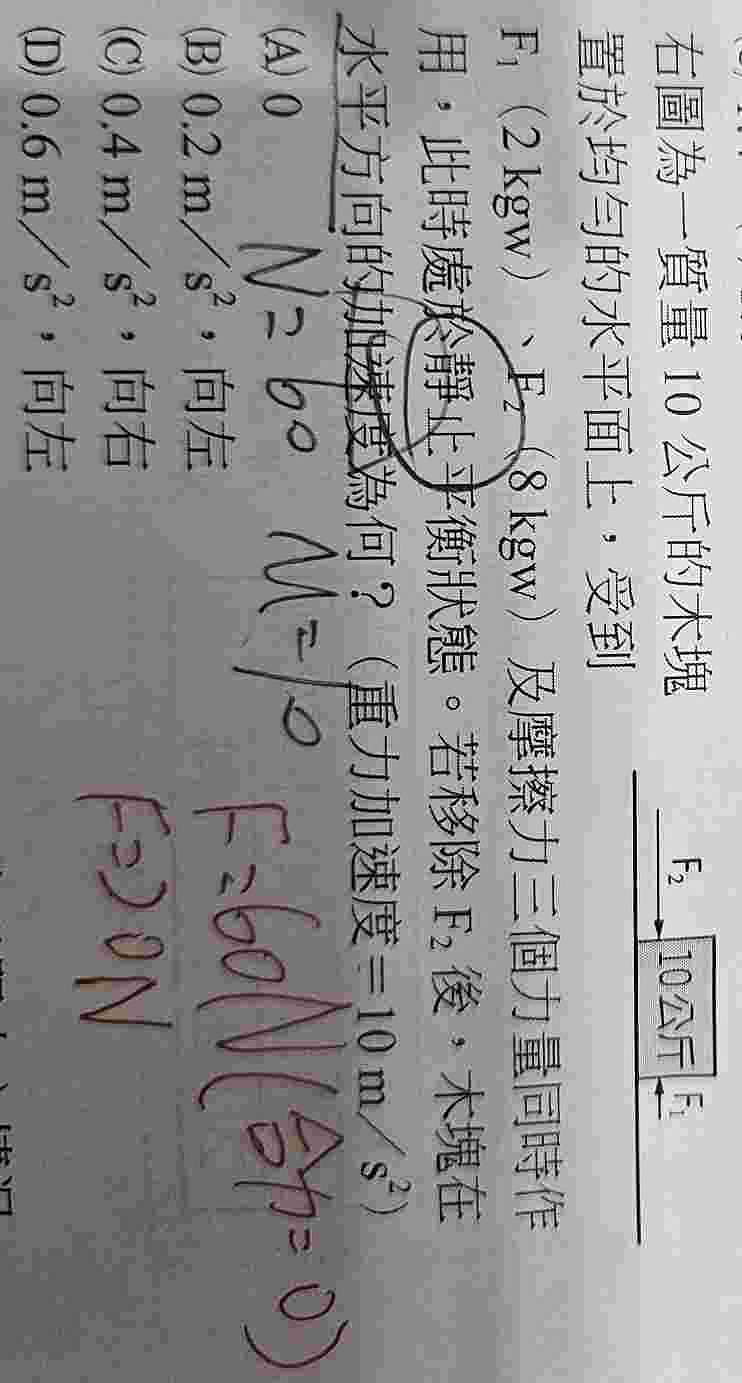 右圖為一質量 10 公斤的木塊
置於均勻的水平面上，受到
F₁（2 kgw）、F₂（8 kgw）及摩擦力三個力量同時作
用，此時處於靜止平衡狀態。若移除 F₂ 後，木塊在
水平方向的加速度為何？（重力加速度＝10 m／s²）
(A) 0
(B) 0.2 m／s²，向左
(C) 0.4 m／s²，向右
(D) 0.6 m／s²，向左
F₂
10 公斤
F₁
N = 60
F = 60N (合力 = 0)